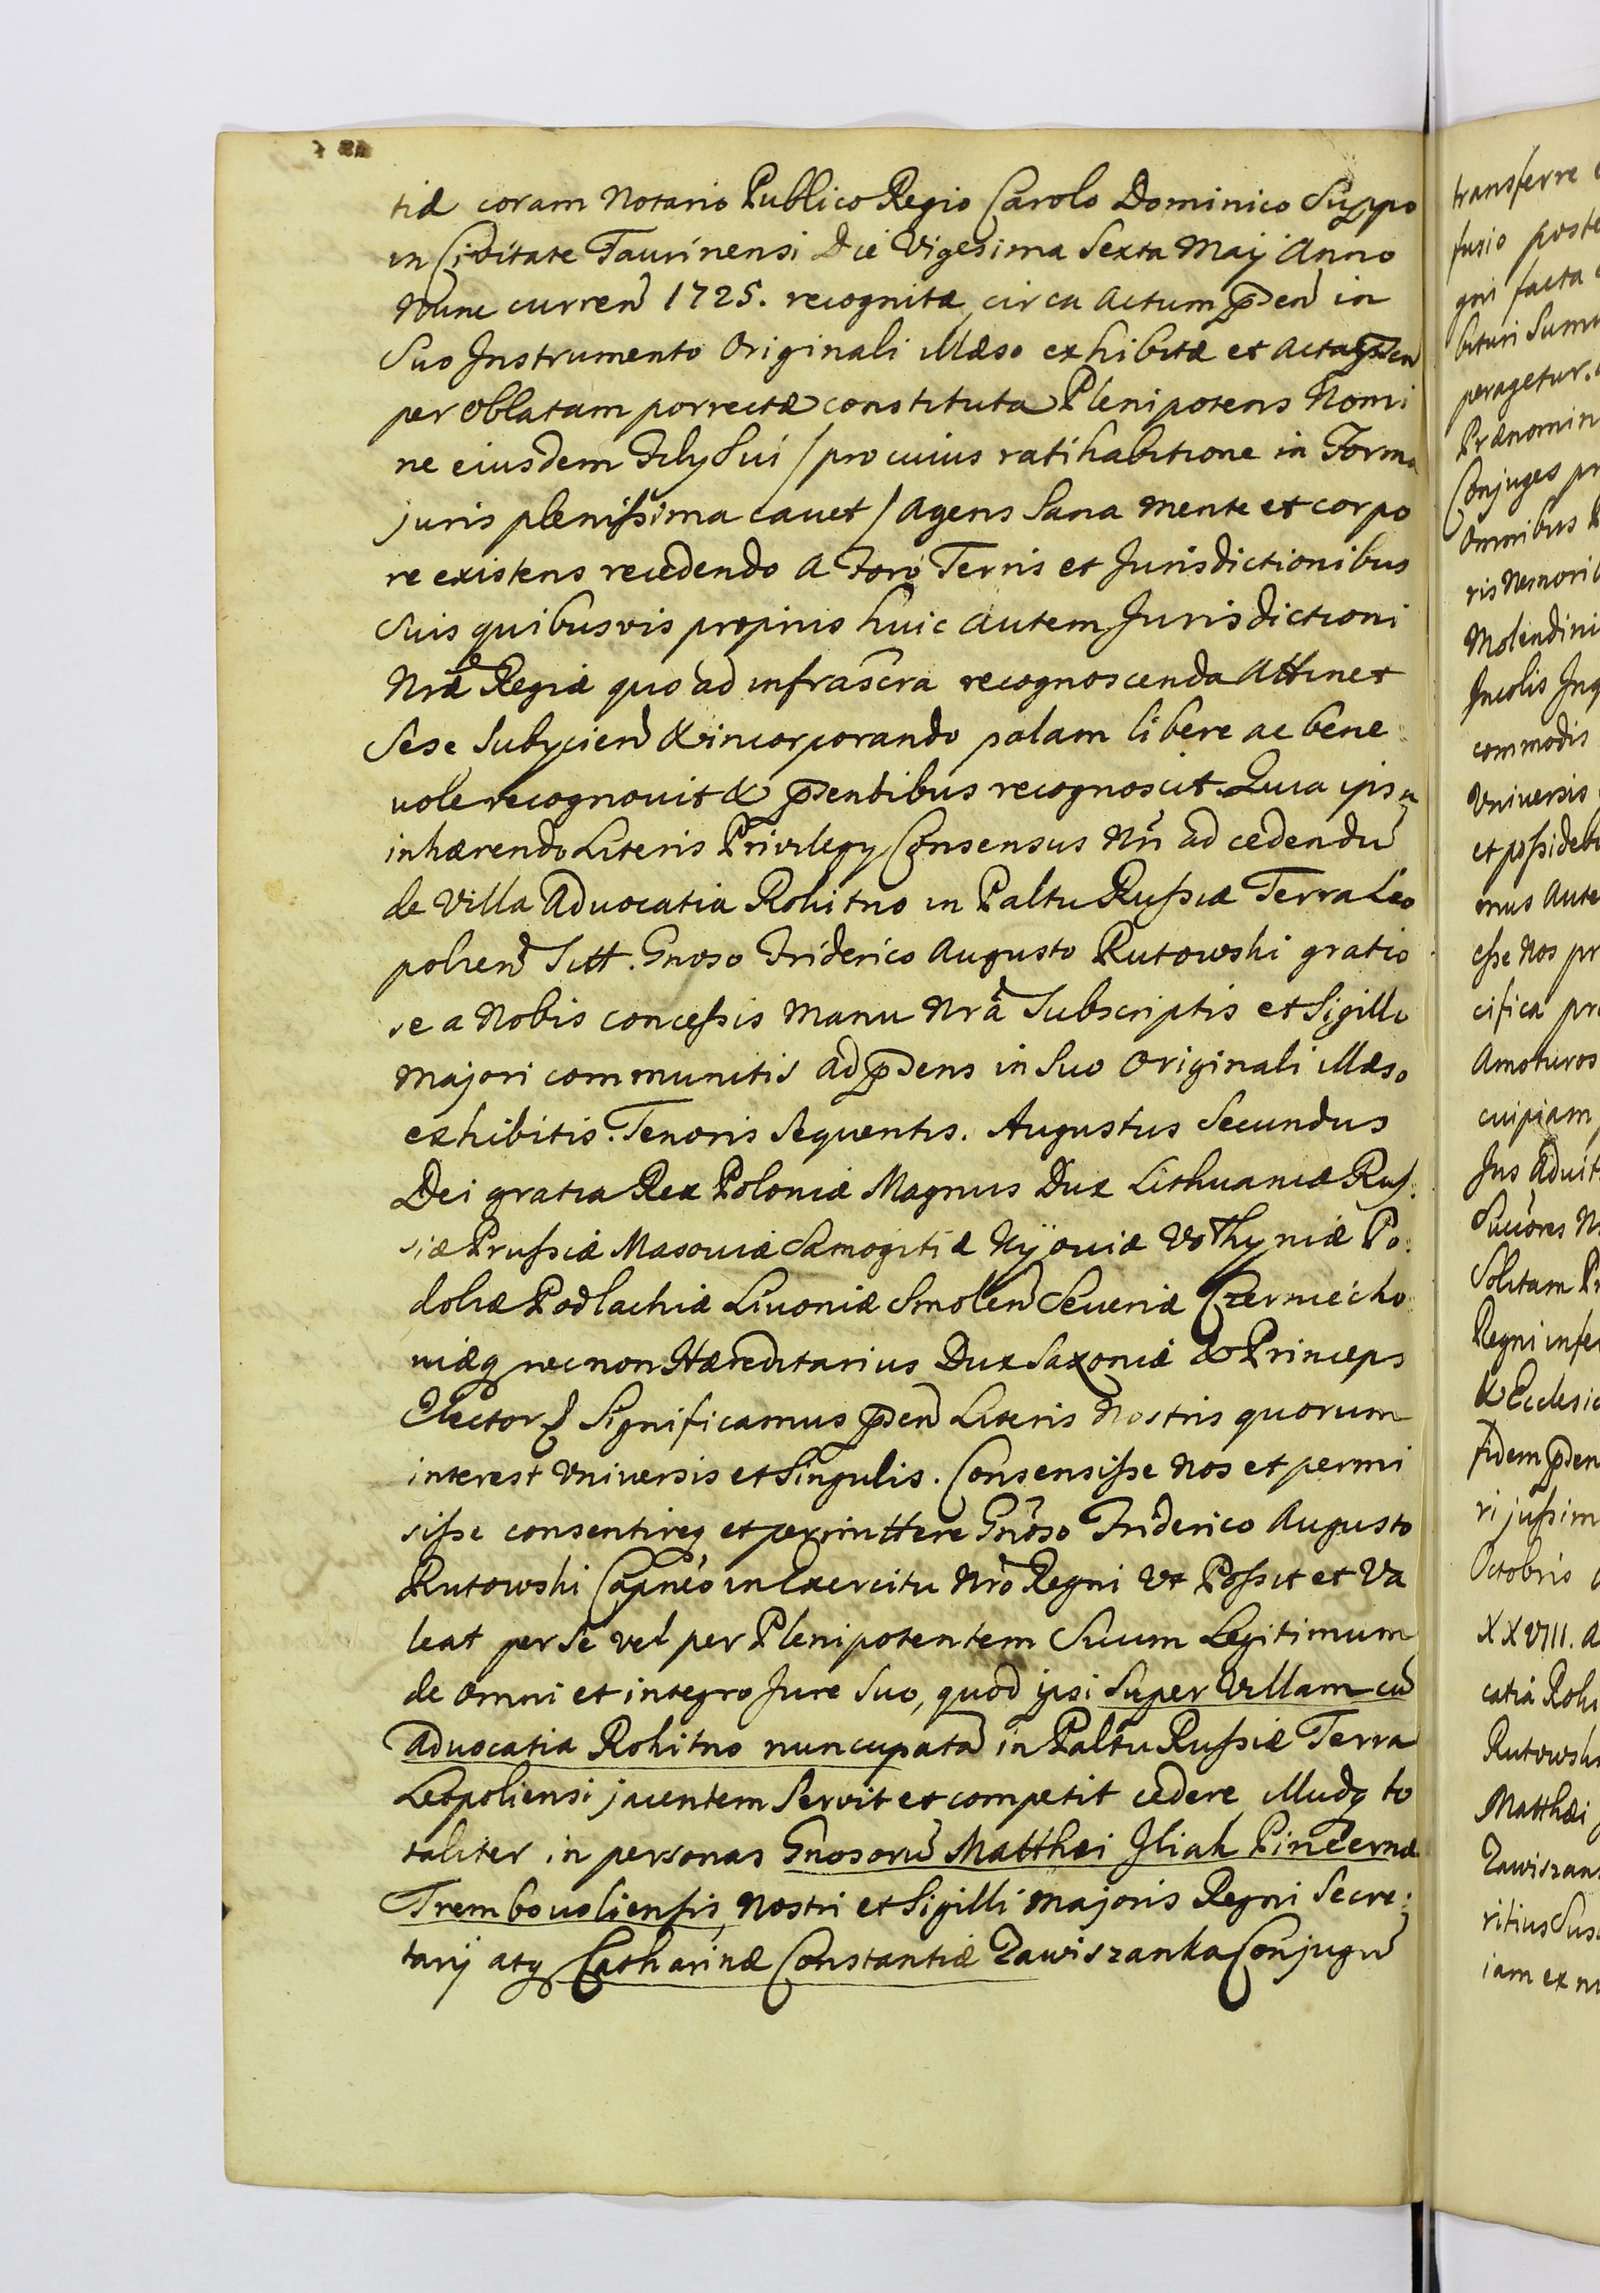 tiæ coram Notario Publico Regio Carolo Dominico Suppo
in Civitate Taurinensi Die Vigesima Sexta Maij Anno
Nunc curren̄ 1725. recognitæ, circa Actum p̄sen̄ in
Suo Instrumento Originali illæso exhibitæ et Acta p̄sen̄
per oblatam porrectæ constituta Plenipotens Nomi
ne eiusdem Filij Sui / pro cuius ratihabitione in Forma
juris plenissima cauet / Agens Sana mente et corpo
re existens recedendo A Foro Terris et Jurisdictionibus
Suis quibusvis proprijs huic Autem Jurisdictioni
Nr̄æ Regiæ quo ad infrascra recognoscenda Attinet
Sese Subijcien̄ & incorporando palam libere ac bene
uole recognouit & p̄sentibus recognoscit. Quia ipsa
inhærendo Literis Privilegij Consensus Nr̄i ad cedendū
de Villa Advocatia Rohitno in Paltu Russiæ Terra Leo
polien̄ Sitt. Gnoso Friderico Augusto Rutowski gratio
se a Nobis concessis Manu Nr̄a Subscriptis et Sigillo
Majori communitis ad p̄sens in Suo Originali illæso
exhibitis. Tenoris Sequentis. Augustus Secundus
Dei gratia Rex Poloniæ Magnus Dux Lithuaniæ Rus:
siæ Prussiæ Masouiæ Samogitiæ Kijouiæ Volhyniæ Po:
doliæ Podlachiæ Liuoniæ Smolen̄ Seueriæ Czerniecho
uiæq necnon Hæreditarius Dux Saxoniæ & Princeps
Elector Significamus p̄sen̄ Literis Nostris quorum
interest Vniuersis et Singulis. Consensisse Nos et permi
sisse consentireq et permittere Gnoso Friderico Augusto
Rutowski Capneo in Exercitu Nr̄o Regni Vt Possit et Va
leat per Se vel per Plenipotentem Suum Legitimum
de omni et integro Jure Suo, quod ipsi Super Villam cū
Aduocatia Rohitno nuncupatā in Paltu Russiæ Terra
Leopoliensi jacentem Servit et competit cedere, illudq to
taliter in personas Gnosorū Matthæi Iliak Pincernæ
Trembouoliensis, Nostri et Sigilli Majoris Regni Secre:
tarij atq Catharinæ Constantiæ Zawiszanka Conjugū
transferre
fusio poste
gni facta
bituri Sumu
peragetur.
Prænomin
Conjuges pr
Omnibus
ris Nemorib
Molendini
Incolis Inq
commodis
Vniuersis
et possideb
mus Aute
esse Nos pr
cifica pr
Amoturos
cuipiam
Jus Aduit
Succores N
Solitam Pr
Regni infe
& Ecclesiæ
fidem p̄sen
ri jussim
Octobris
XXVIII. a
catia Rohi
Rutowski
Matthæi
Zawiszan
ritius Sus
iam ex n